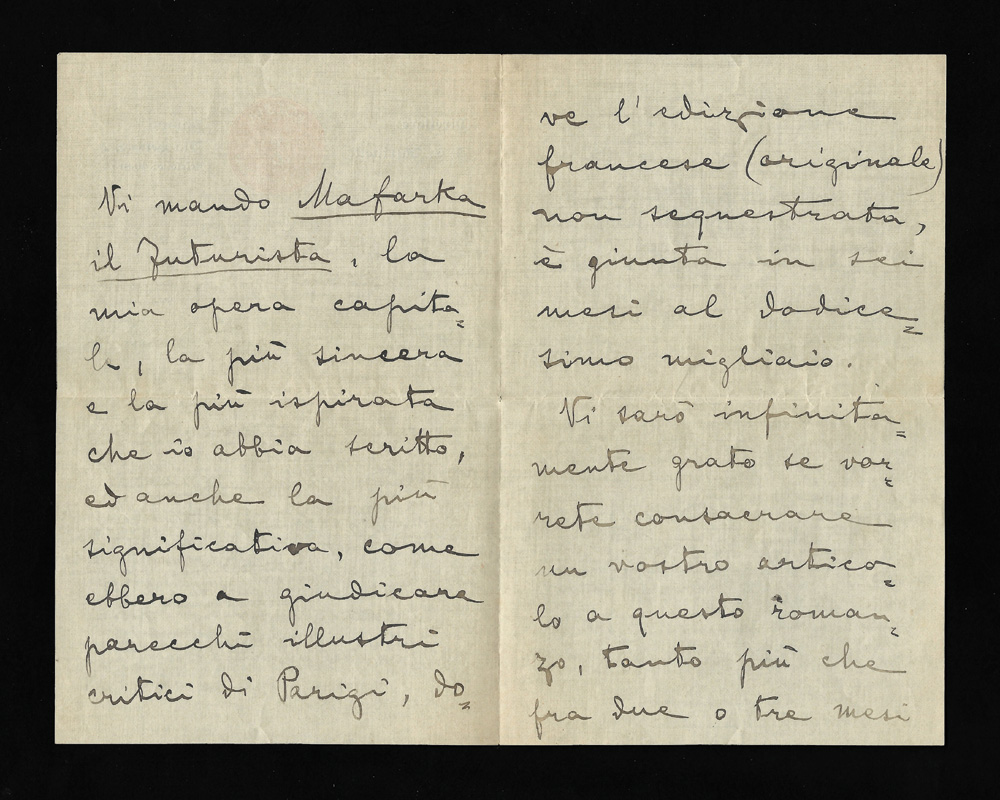 Vi mando Mafarka
il Futurista, la
mia opera capita=
le, la più sincera
e la più ispirata
che io abbia scritto,
ed anche la più
significativa, come
ebbero a giudicare
parecchi illustri
critici di Parigi, do=
ve l'edizione
francese (originale)
non sequestrata,
è giunta in sei
mesi al dodice=
simo migliaio.
Vi sarò infinita=
mente grato se vor=
rete consacrare
un vostro artico=
lo a questo roman=
zo, tanto più che
fra due o tre mesi